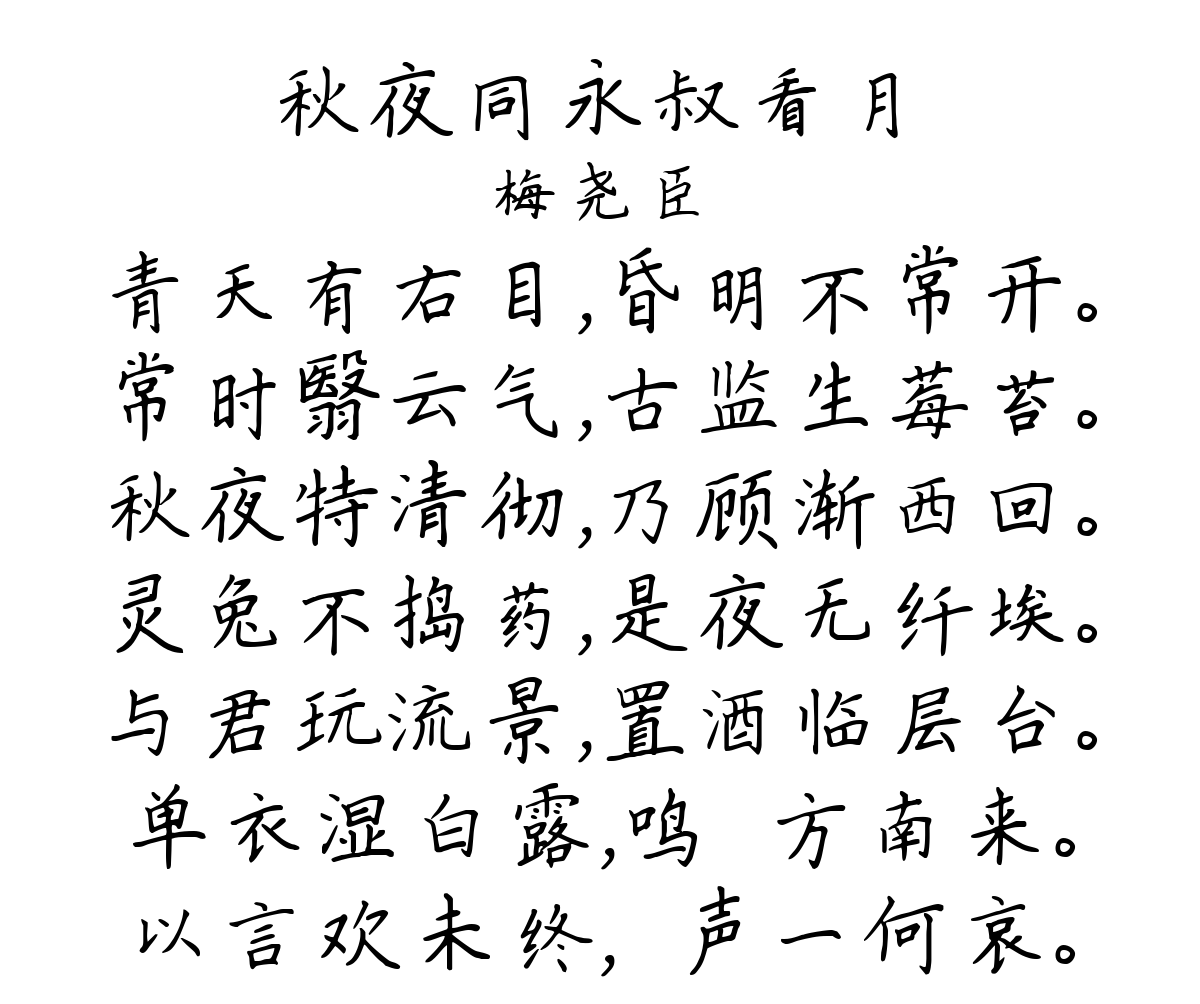 秋夜同永叔看月
梅尧臣
青天有右目,昏明不常开。
常时翳云气,古监生莓苔。
秋夜特清彻,乃顾渐西回。
灵兔不捣药,是夜无纤埃。
与君玩流景,置酒临层台。
单衣湿白露,鸣 方南来。
以言欢未终, 声一何哀。